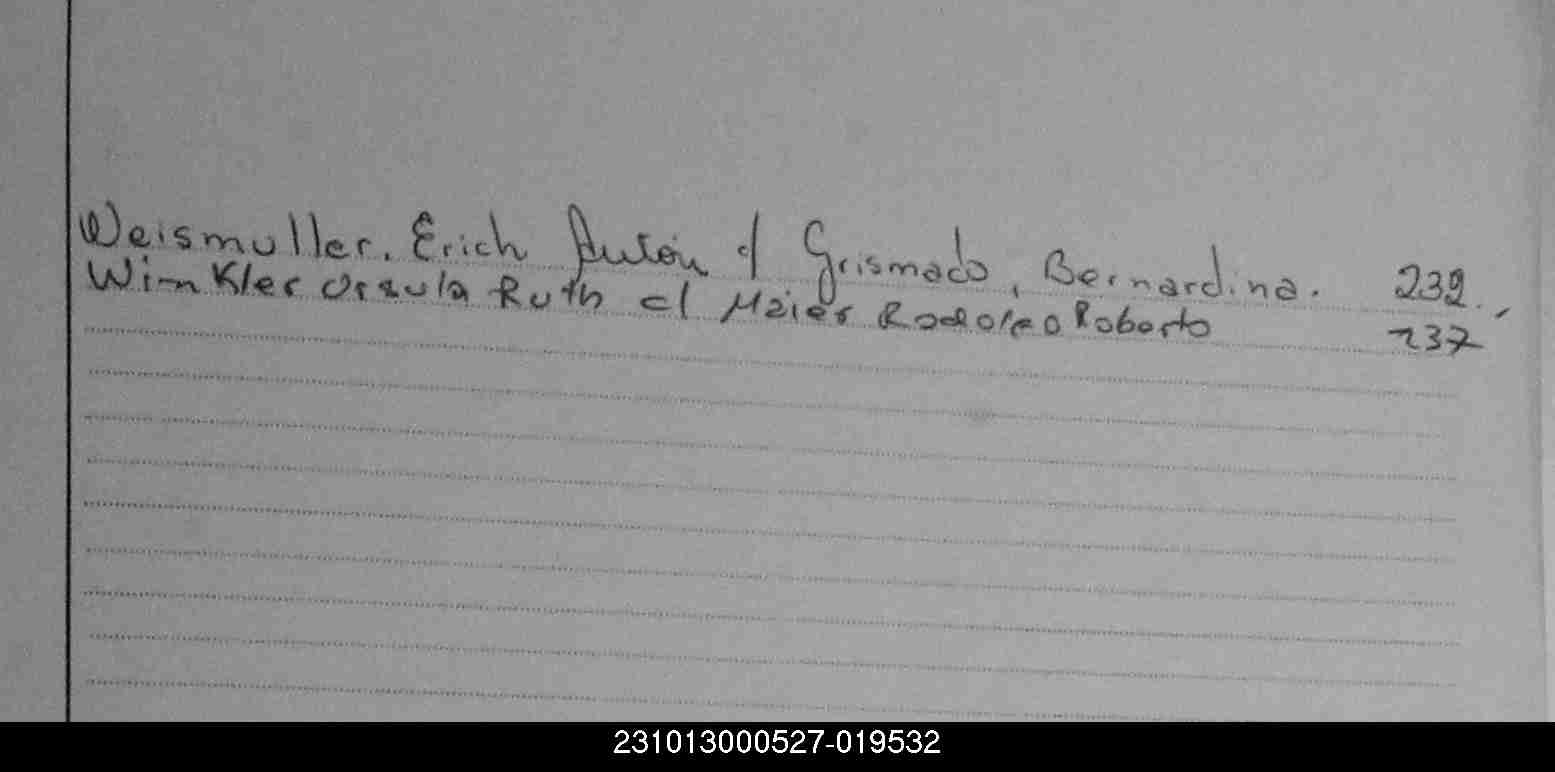 Weismuller, Erich Antón c/ Grismado, Bernardina. 232.
Winkler Ursula Ruth c/ Maier Rodolfo Roberto 237
231013000527-019532